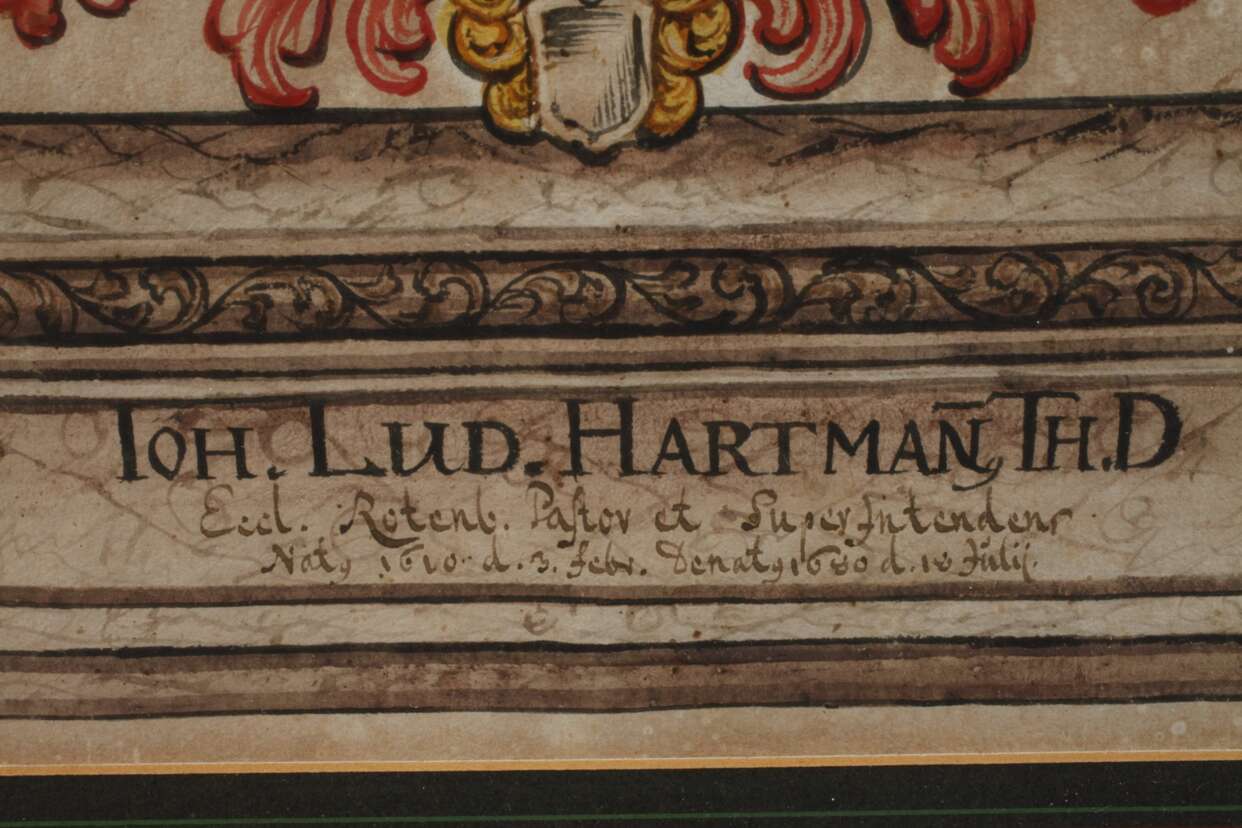 IOH. LUD. HARTMAÑꝰ TH. D
Eccl. Rotenb. Pastor et SuperIntendens
Natꝰ 1610. d. 3. Febr. Denatꝰ 1680 d. 18 Julij.